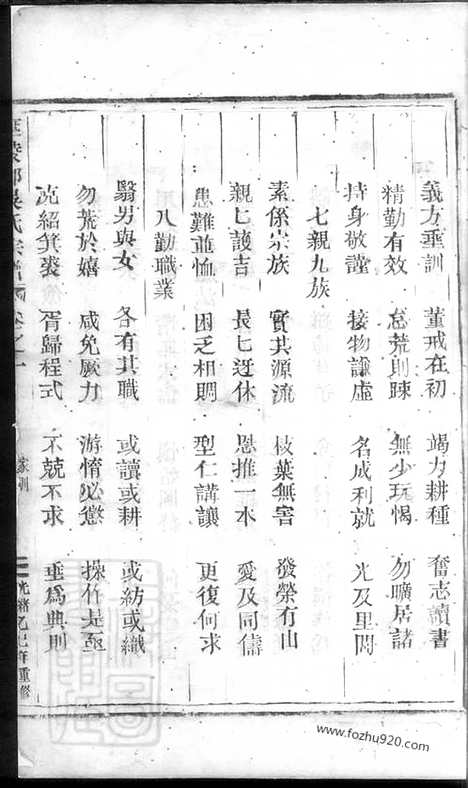 義方垂訓　董戒在初　竭力耕種　奮志讀書
精勤有效　怠荒則踈　無少玩愒　勿曠居諸
持身敬謹　接物謙虛　名成利就　光及里閭
七親九族
素係宗族　實共源流　枝葉無害　發榮有山
親匕護吉　長匕迓休　恩推一本　愛及同儔
患難並恤　困乏相賙　型仁講讓　更復何求
八勤職業
翳男與女　各有其職　或讀或耕　或紡或織
勿荒於嬉　咸免厥力　游惰必懲　操作是亟
克紹箕裘　胥歸程式　不競不求　垂為典則
吳氏宗譜　卷之一　家訓　光緒乙巳年重修
www.fozhu920.com